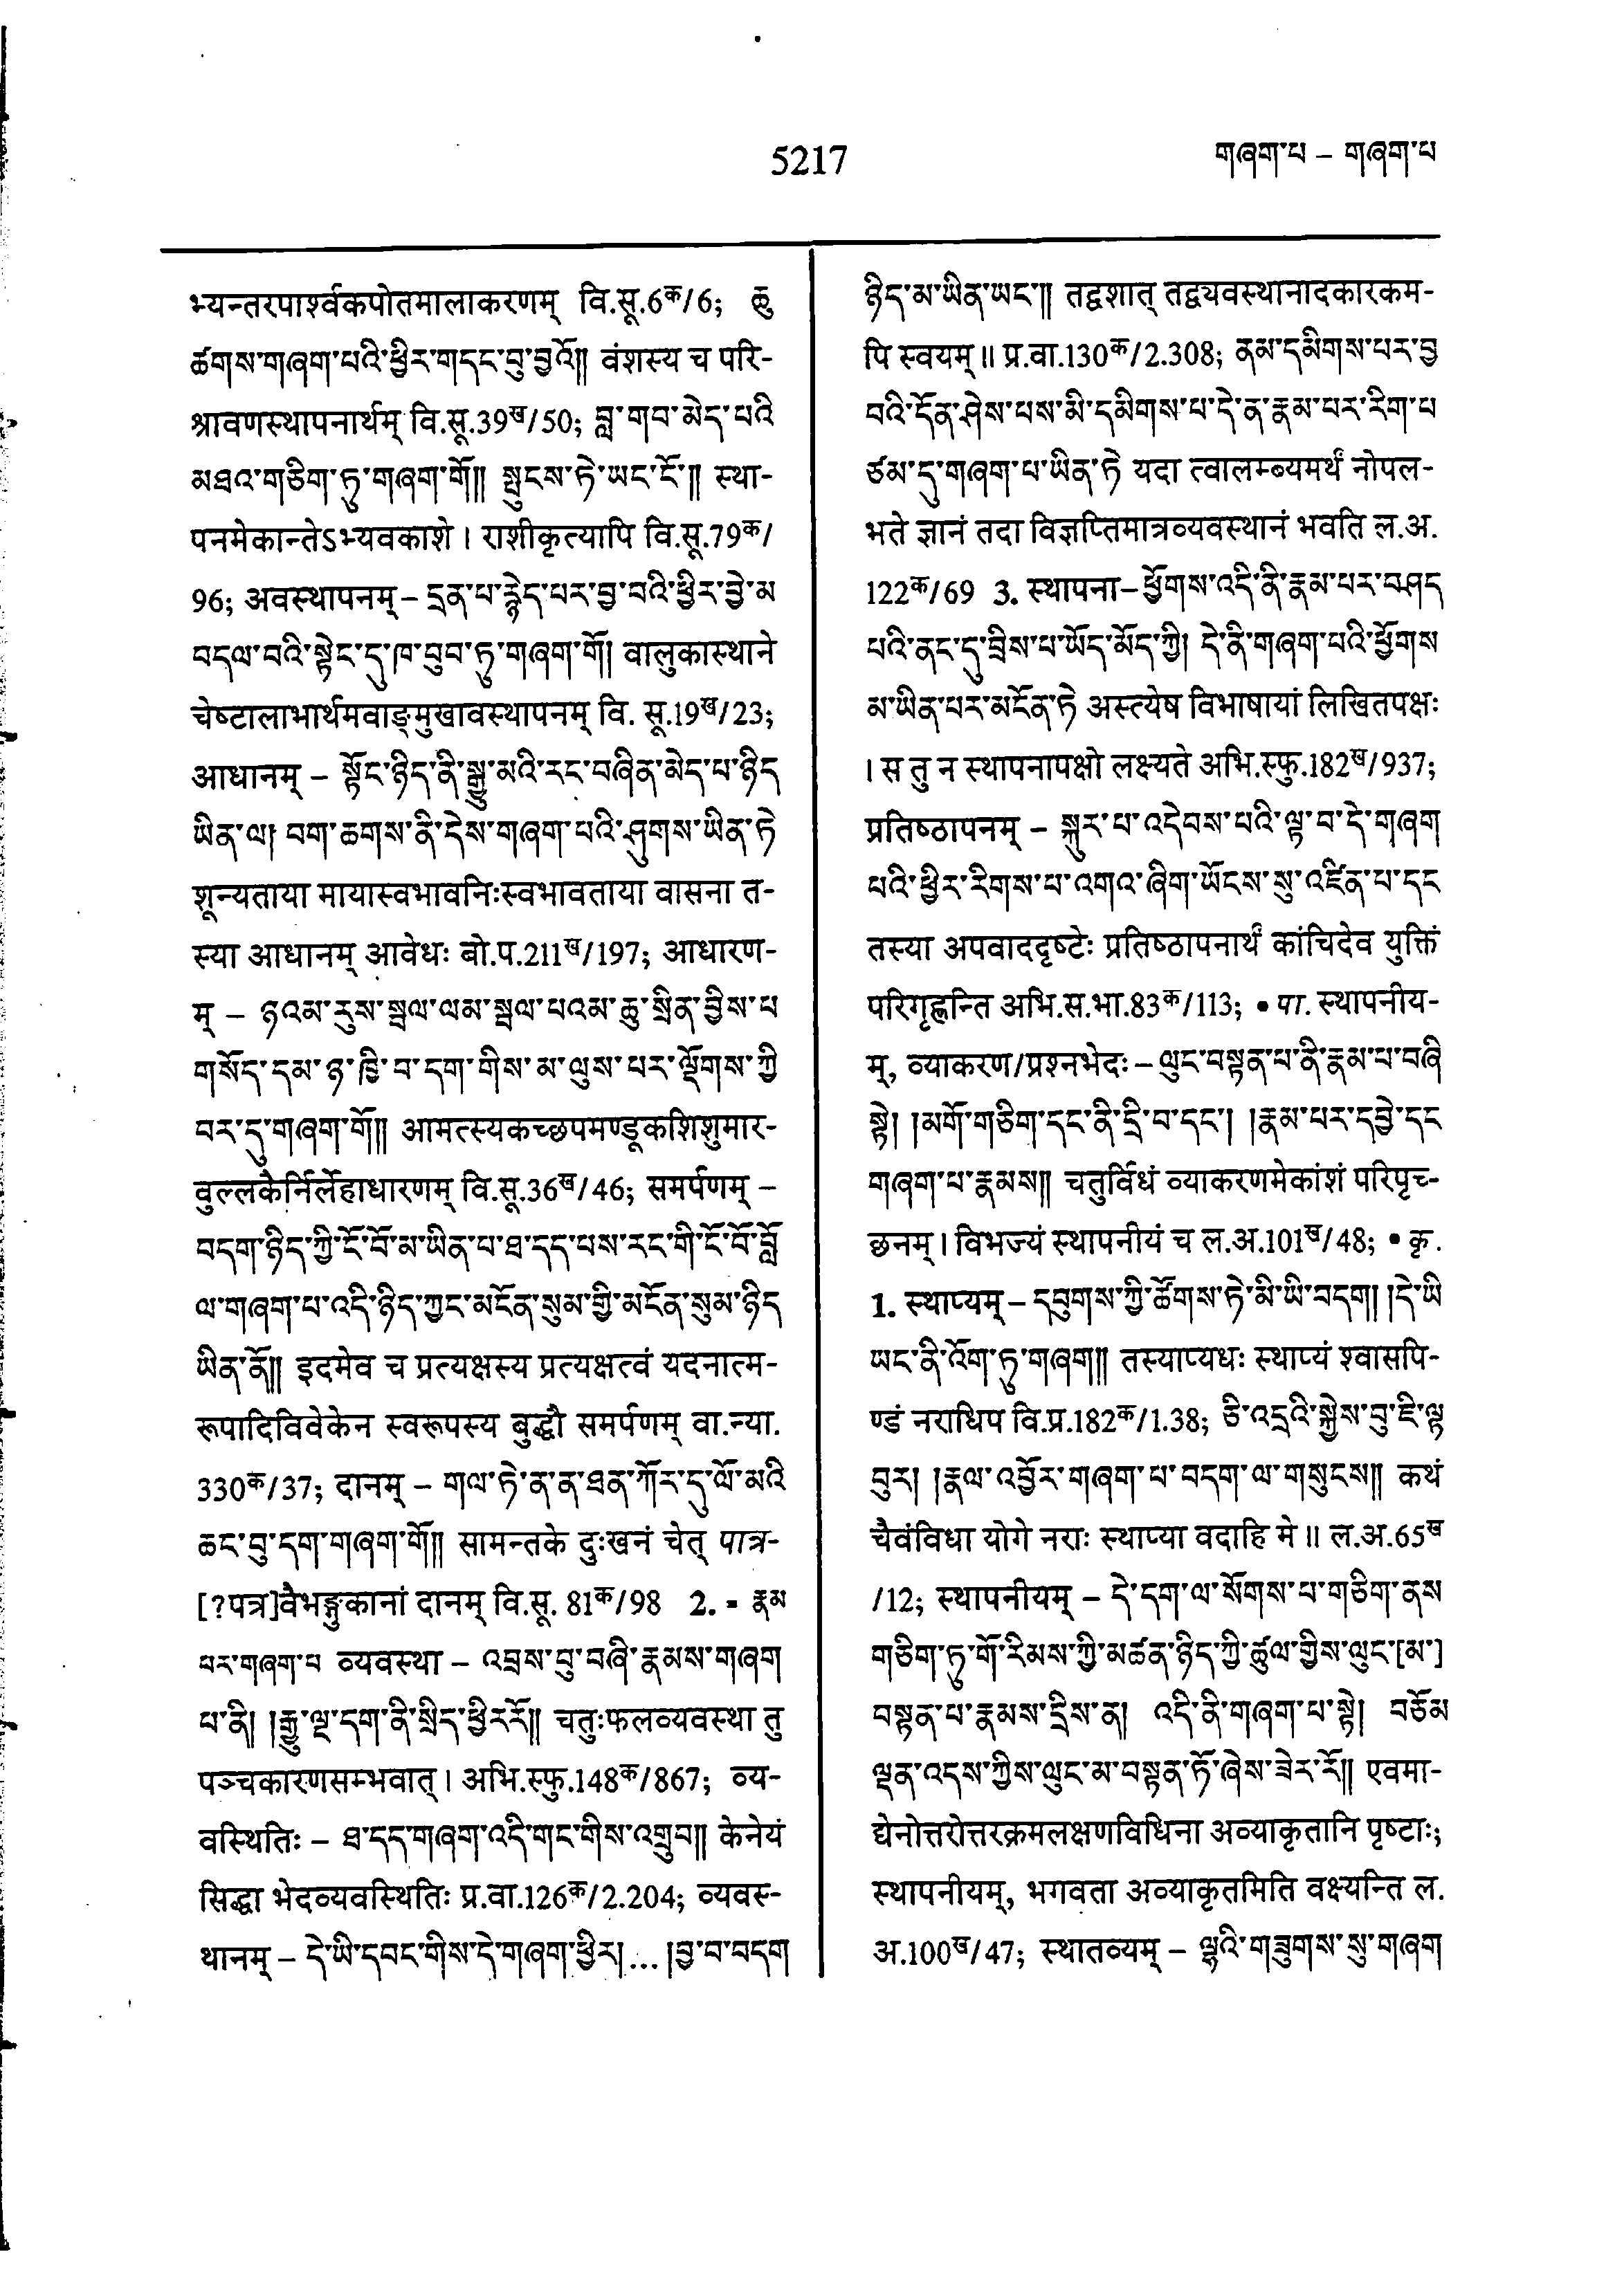 5217
གཞག་པ – གཞག་པ
भ्यन्तरपार्श्वकपोतमालाकरणम् वि.सू.6क/6; ཆུ
ཚགས་གཞག་པའི་ཕྱིར་གདང་བུ་བྱའོ།། वंशस्य च परि-
श्रावणस्थापनार्थम् वि.सू.39ख/50; བླ་གབ་མེད་པའི
མཐའ་གཅིག་ཏུ་གཞག་གོ།། སྤུངས་ཏེ་ཡང་ངོ་།། स्था-
पनमेकान्तेऽभ्यवकाशे। राशीकृत्यापि वि.सू.79क/
96; अवस्थापनम् – དྲན་པ་རྙེད་པར་བྱ་བའི་ཕྱིར་བྱེ་མ
བདལ་བའི་སྟེང་དུ་ཁ་བུབ་ཏུ་གཞག་གོ། वालुकास्थाने
चेष्टालाभार्थमवाङ्मुखावस्थापनम् वि. सू.19ख/23;
आधानम् – སྟོང་ཉིད་ནི་སྒྱུ་མའི་རང་བཞིན་མེད་པ་ཉིད
ཡིན་ལ། བག་ཆགས་ནི་དེས་གཞག་པའི་ཤུགས་ཡིན་ཏེ
शून्यताया मायास्वभावनिःस्वभावताया वासना त-
स्या आधानम् आवेधः बो.प.211ख/197; आधारण-
म् – ཉའམ་རུས་སྦལ་ལམ་སྦལ་པའམ་ཆུ་སྲིན་བྱིས་པ
གསོད་དམ་ཉ་ཁྱི་བ་དག་གིས་མ་ལུས་པར་ལྡོགས་ཀྱི
བར་དུ་གཞག་གོ།། आमत्स्यकच्छपमण्डूकशिशुमार-
वुल्लकैर्निर्लेहाधारणम् वि.सू.36ख/46; समर्पणम् –
བདག་ཉིད་ཀྱི་ངོ་བོ་མ་ཡིན་པ་ཐ་དད་པས་རང་གི་ངོ་བོ་བློ
ལ་གཞག་པ་འདི་ཉིད་ཀྱང་མངོན་སུམ་གྱི་མངོན་སུམ་ཉིད
ཡིན་ནོ།། इदमेव च प्रत्यक्षस्य प्रत्यक्षत्वं यदनात्म-
रूपादिविवेकेन स्वरूपस्य बुद्धौ समर्पणम् वा.न्या.
330क/37; दानम् – གལ་ཏེ་ན་ན་ཐན་ཀོར་དུ་ལོ་མའི
ཆང་བུ་དག་གཞག་གོ།། सामन्तके दुःखनं चेत् पात्र-
[?पत्र]वैभङ्गुकानां दानम् वि.सू. 81क/98 2. ॰ རྣམ
པར་གཞག་པ व्यवस्था – འབྲས་བུ་བཞི་རྣམས་གཞག
པ་ནི། །རྒྱུ་ལྔ་དག་ནི་སྲིད་ཕྱིརརོ།། चतुःफलव्यवस्था तु
पञ्चकारणसम्भवात्। अभि.स्फु.148क/867; व्य-
वस्थितिः – ཐ་དད་གཞག་འདི་གང་གིས་འགྲུབ།། केनेयं
सिद्धा भेदव्यवस्थितिः प्र.वा.126क/2.204; व्यवस्-
थानम् – དེ་ཡི་དབང་གིས་དེ་གཞག་ཕྱིར།… །བྱ་བ་བདག
ཉིད་མ་ཡིན་ཡང་།། तद्वशात् तद्व्यवस्थानादकारकम-
पि स्वयम्॥ प्र.वा.130क/2.308; ནམ་དམིགས་པར་བྱ
བའི་དོན་ཤེས་པས་མི་དམིགས་པ་དེ་ན་རྣམ་པར་རིག་པ
ཙམ་དུ་གཞག་པ་ཡིན་ཏེ यदा त्वालम्ब्यमर्थं नोपल-
भते ज्ञानं तदा विज्ञप्तिमात्रव्यवस्थानं भवति ल.अ.
122क/69 3. स्थापना – ཕྱོགས་འདི་ནི་རྣམ་པར་བཤད
པའི་ནང་དུ་བྲིས་པ་ཡོད་མོད་ཀྱི། དེ་ནི་གཞག་པའི་ཕྱོགས
མ་ཡིན་པར་མངོན་ཏེ अस्त्येष विभाषायां लिखितपक्षः
। स तु न स्थापनापक्षो लक्ष्यते अभि.स्फु.182ख/937;
प्रतिष्ठापनम् – སྐུར་པ་འདེབས་པའི་ལྟ་བ་དེ་གཞག
པའི་ཕྱིར་རིགས་པ་འགའ་ཞིག་ཡོངས་སུ་འཛིན་པ་དང
तस्या अपवाददृष्टेः प्रतिष्ठापनार्थं कांचिदेव युक्तिं
परिगृह्णन्ति अभि.स.भा.83क/113; • पा. स्थापनीय-
म्, व्याकरण/प्रश्नभेदः – ལུང་བསྟན་པ་ནི་རྣམ་པ་བཞི
སྟེ། །མགོ་གཅིག་དང་ནི་དྲི་བ་དང་། །རྣམ་པར་དབྱེ་དང
གཞག་པ་རྣམས།། चतुर्विधं व्याकरणमेकांशं परिपृच्-
छनम्। विभज्यं स्थापनीयं च ल.अ.101ख/48; • कृ.
1. स्थाप्यम् – དབུགས་ཀྱི་ཚོགས་ཏེ་མི་ཡི་བདག། །དེ་ཡི
ཡང་ནི་འོག་ཏུ་གཞག།། तस्याप्यधः स्थाप्यं श्वासपि-
ण्डं नराधिप वि.प्र.182क/1.38; ཅི་འདྲའི་སྐྱེས་བུ་ཇི་ལྟ
བུར། །རྣལ་འབྱོར་གཞག་པ་བདག་ལ་གསུངས།། कथं
चैवंविधा योगे नराः स्थाप्या वदाहि मे॥ ल.अ.65ख
/12; स्थापनीयम् – དེ་དག་ལ་སོགས་པ་གཅིག་ནས
གཅིག་ཏུ་གོ་རིམས་ཀྱི་མཚན་ཉིད་ཀྱི་ཚུལ་གྱིས་ལུང་[མ་]
བསྟན་པ་རྣམས་དྲིས་ན། འདི་ནི་གཞག་པ་སྟེ། བཅོམ
ལྡན་འདས་ཀྱིས་ལུང་མ་བསྟན་ཏོ་ཞེས་ཟེར་རོ།། एवमा-
द्येनोत्तरोत्तरक्रमलक्षणविधिना अव्याकृतानि पृष्टाः;
स्थापनीयम्, भगवता अव्याकृतमिति वक्ष्यन्ति ल.
अ.100ख/47; स्थातव्यम् – ལྷའི་གཟུགས་སུ་གཞག